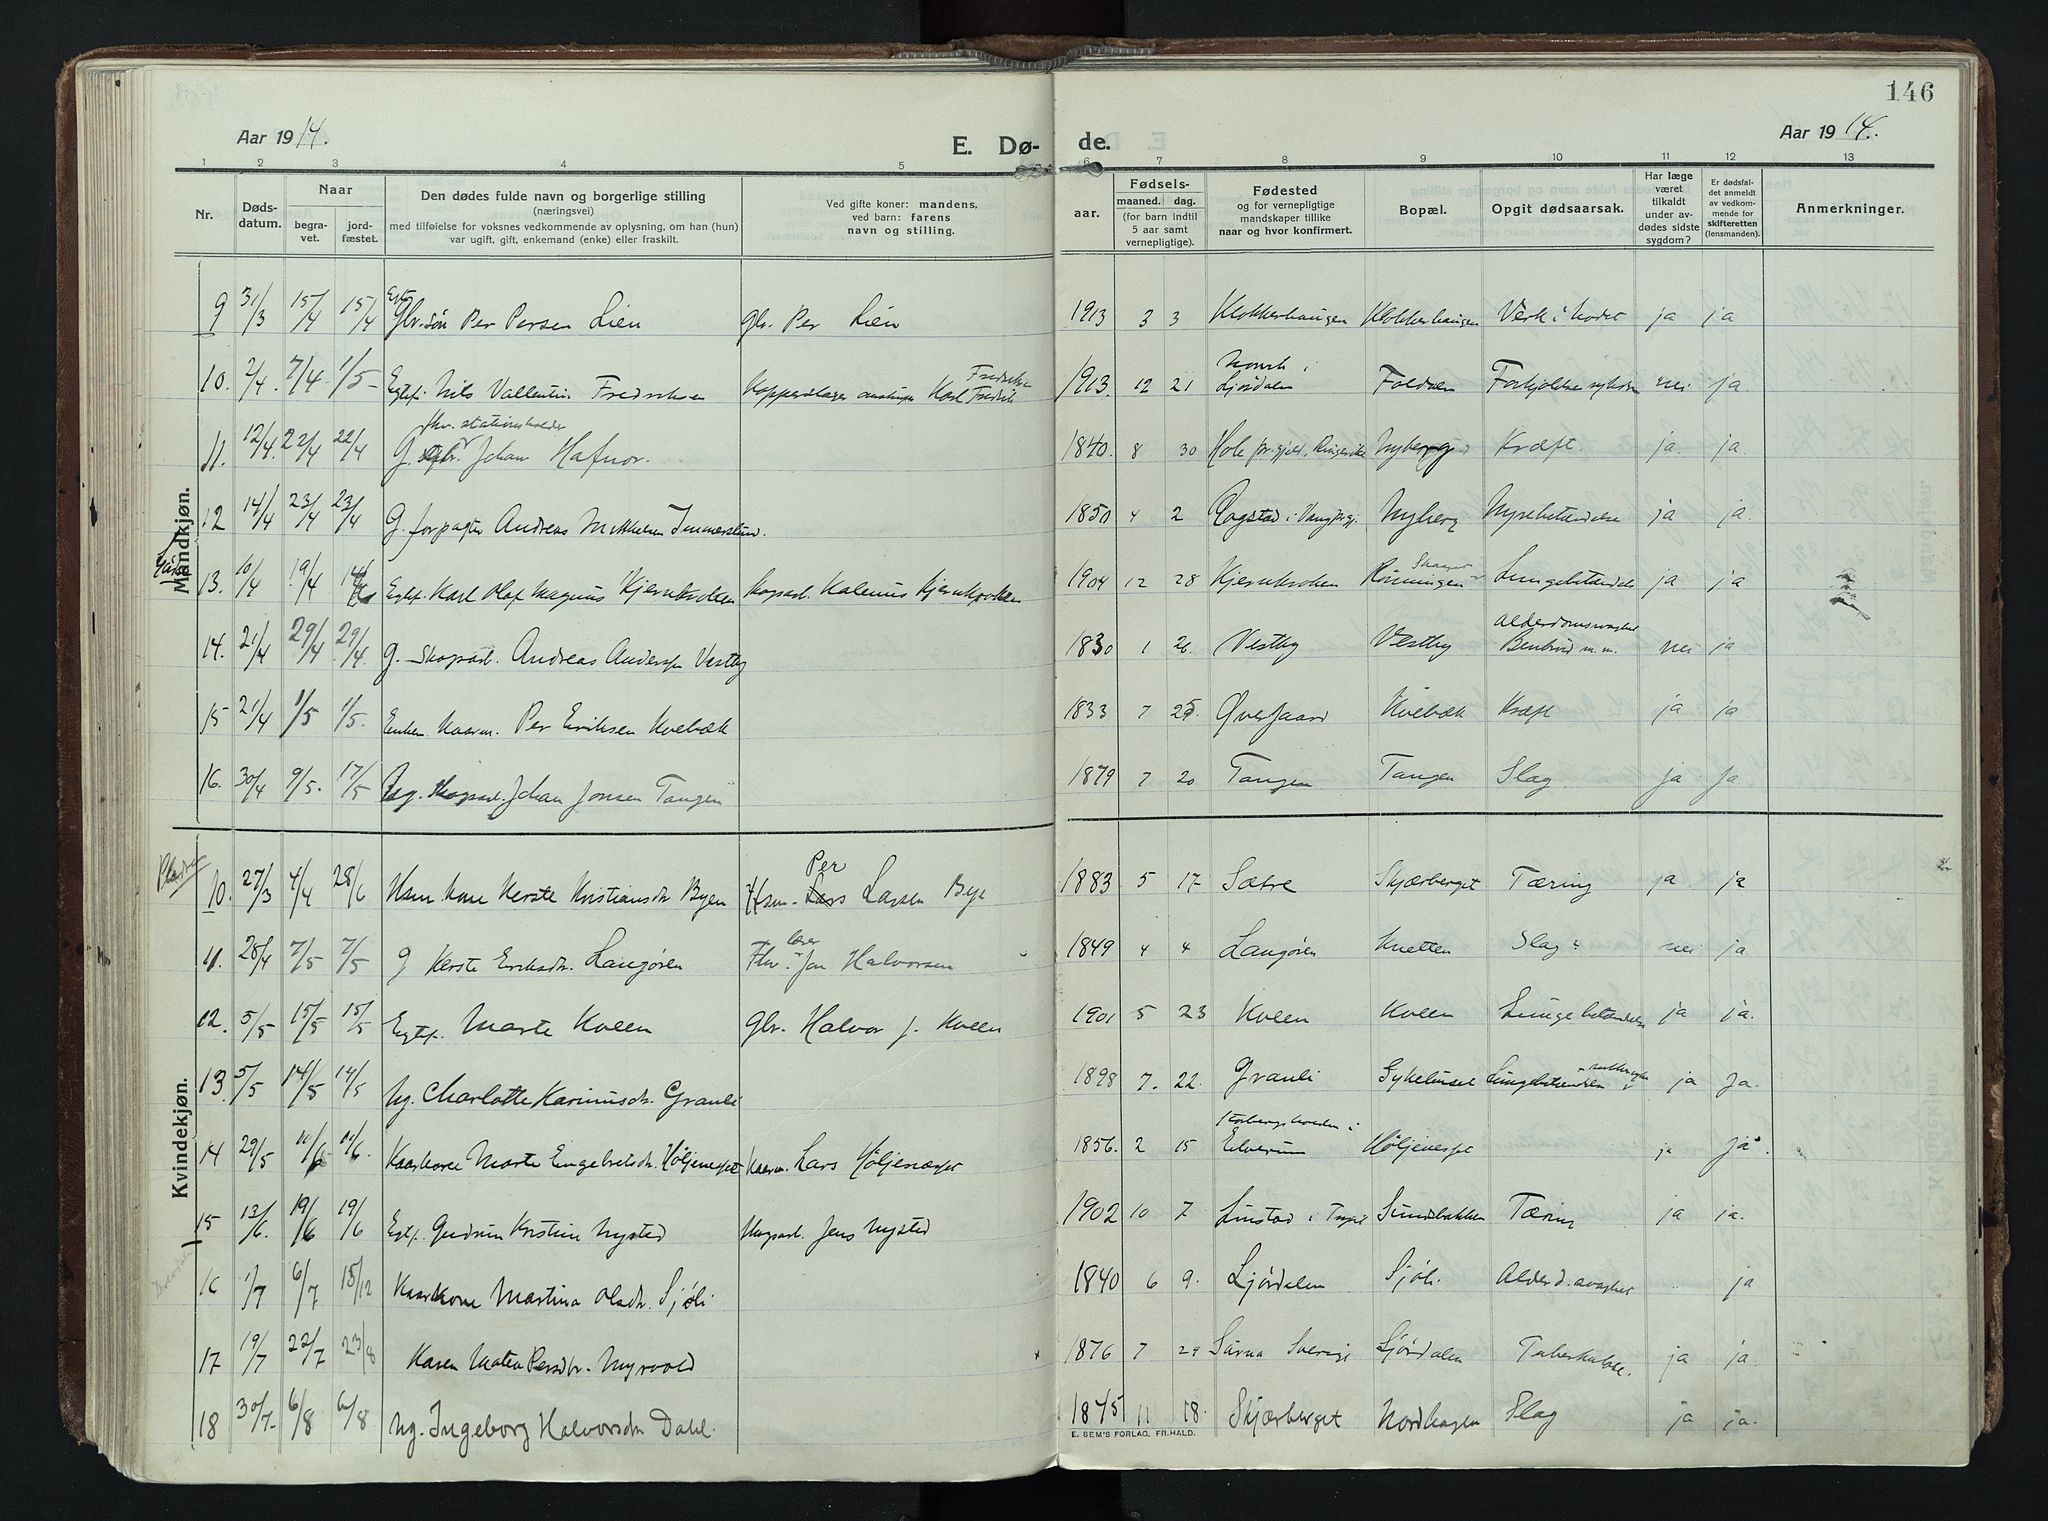 146
Aar 1914.
E. Dø-
de.
Aar 1914.
1 2 3 4 5 6 7 8 9 10 11 12 13
Nr.
Døds-
datum.
Naar
begra-
vet.
jord-
fæstet.
Den dødes fulde navn og borgerlige stilling
(næringsvei)
med tilføielse for voksnes vedkommende av oplysning, om han (hun)
var ugift, gift, enkemand (enke) eller fraskilt.
Ved gifte koner: mandens,
ved barn: farens
navn og stilling.
aar.
Fødsels-
maaned. dag.
(for barn indtil
5 aar samt
vernepligtige).
Fødested
og for vernepligtige
mandskaper tillike
naar og hvor konfirmert.
Bopæl.
Opgit dødsaarsak.
Har læge
været
tilkaldt
under av-
dødes sidste
sygdom?
Er dødsfal-
det anmeldt
av vedkom-
mende for
skifteretten
(lensmanden).
Anmerkninger.
Mandkjøn.
9 31/3 15/4 15/4 Gbr. søn Per Persen Lien gbr. Per Lien 1913 3 3 Klokkerhaugen Klokkerhaugen Verk i hodet ja ja
Norsk i
10. 2/4. 7/4 1/5 Egtef. Nils Vallentin Fredriksen Kopperslager Karl Fredrik Fredriksen 1913. 12 21 Ljørdalen Foldven nei ja.
fhv. stationsholder
11. 12/4. 22/4 22/4 G. gbr. Johan Hafnor. 1840. 8 30 Hole pr.gjeld, Ringerike Nyberg Kræft. ja ja.
12 14/4 23/4 23/4 G. forpagter Andreas Mikkelsen 1850 4 2 Nyberg Nyrebetændelse ja ja.
13. 10/4 19/4 Egtef. Karl Olaf Magnus Kjernkroken Skogsarb. Kalenius Kjernkroken 1904 12 28 Kjernkroken Rønningen Lungebetændelse ja ja
14. 21/4 29/4 29/4. G. Skogsarb. Andreas Andersen Vestby 1830 1 26. Vestby Vestby Alderdomssvaghet Benbrud m.m. nei ja
15 21/4 1/5 1/5. Enkem. Kaarm. Per Eriksen Kvebæk 1833 7 25. Øvergaard Kvebæk Kræft ja ja
16. 30/4 9/5. 17/5 Ug. Skogsarb. Johan Jonsen Tangen 1879 7 20 Tangen Tangen Slag ja ja.
Kvindekjøn.
10. 27/3 4/4 28/6 Hsm. kone Kerste Kristiansdr. Byen Hsm. Per Larsen Bye 1883 5 17 Sætre Skjærberget Tæring ja ja
11. 28/4 7/5 7/5 G Kerste Eriksdr. Langøren Fhv. lærer Jon Halvorsen 1849 4 4 Langøren Knetten Slag nei ja
12. 5/5 15/5 15/5 Egtef. Marte Kveen Gbr. Halvor J. Kveen 1901 5 23 Kveen Kveen Lungebetændelse ja ja.
13. 5/5 14/5 14/5 Ug. Charlotte Karinusdr. Granli 1898 7. 22. Granli Sykehuset Lungebetændelse ja ja.
14 29/5 11/6 11/6. Kaarkone Marte Engebretsdr. Høljenesset Kaarm. Lars Høljenæsset 1856. 2 15 Elverum Høljenesset ja ja.
15 13/6. 19/6 19/6 Egtf. Gudrun Kristine Nysted Skogsarb. Jens Nysted 1902 10 7 Linstad i Trysil Sundsbakken Tæring ja ja.
16 1/7 6/7 15/12 Kaarkone Martina Olsdr. Sjøli 1840 6 9. Ljørdalen Sjøli. Alderd.svaghet ja
17 19/7 22/7 23/8 Karen Matea Persdtr. Myrvold 1876 7 29 Särna Sverige Ljørdalen Tuberkulose. ja ja
18 30/7. 6/8 6/8 Ug. Ingeborg Halvorsdr. Dahl. 1875 11 18. Skjærberget Nordhagen Slag ja ja.
E. SEM'S FORLAG, FR.HALD.